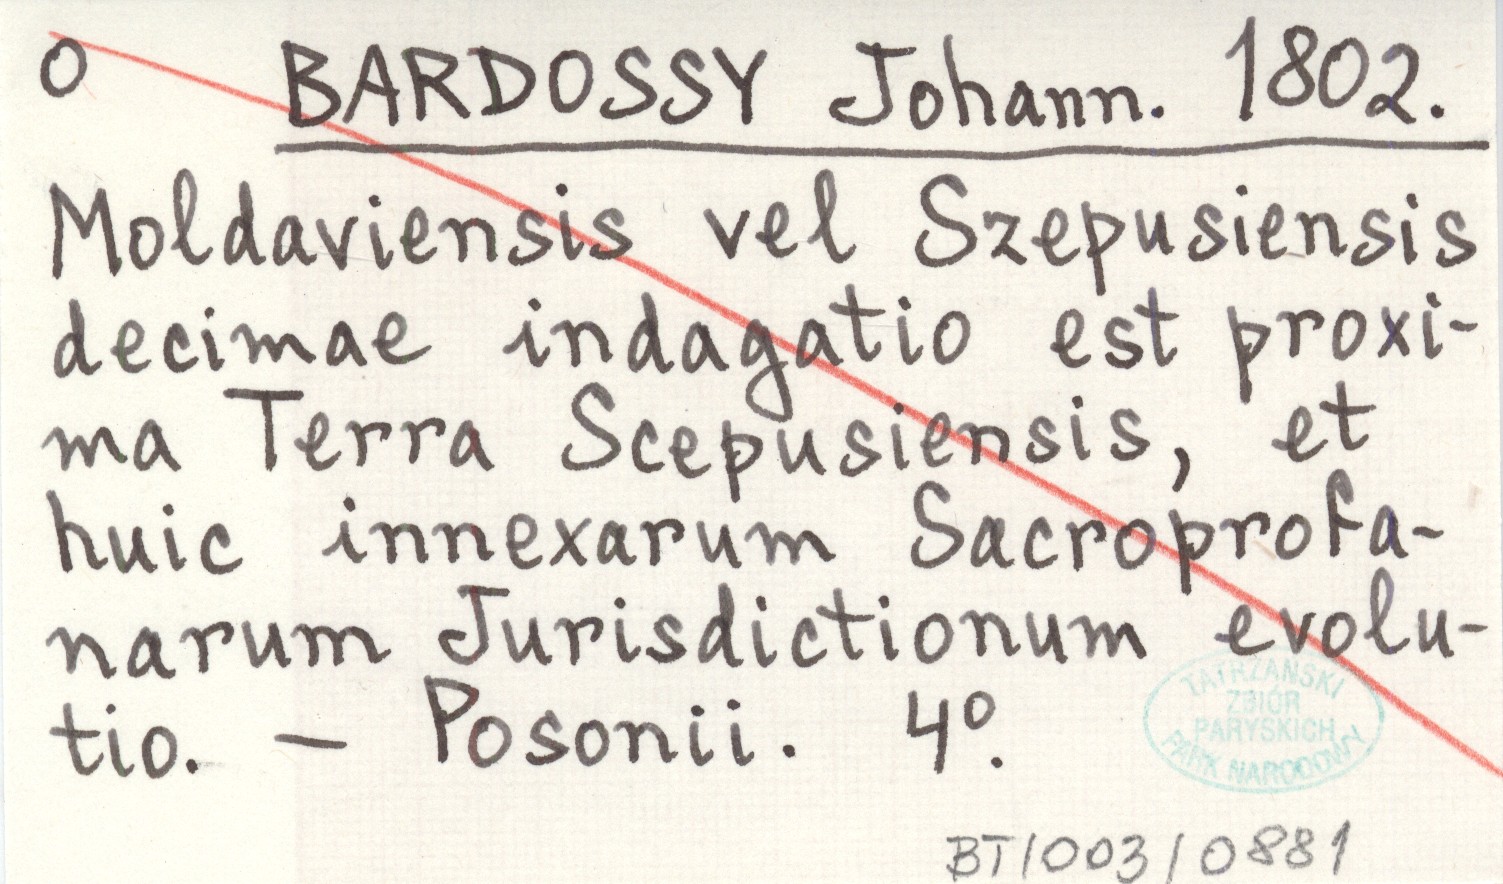 o BARDOSSY Johann. 1802.
Moldaviensis vel Szepusiensis
decimae indagatio est proxi-
ma Terra Scepusiensis, et
huic innexarum Sacroprofa-
narum Jurisdictionum evolu-
tio. — Posonii. 4º.
TATRZAŃSKI
ZBIÓR
PARYSKICH
PARK NARODOWY
BT/003/0881